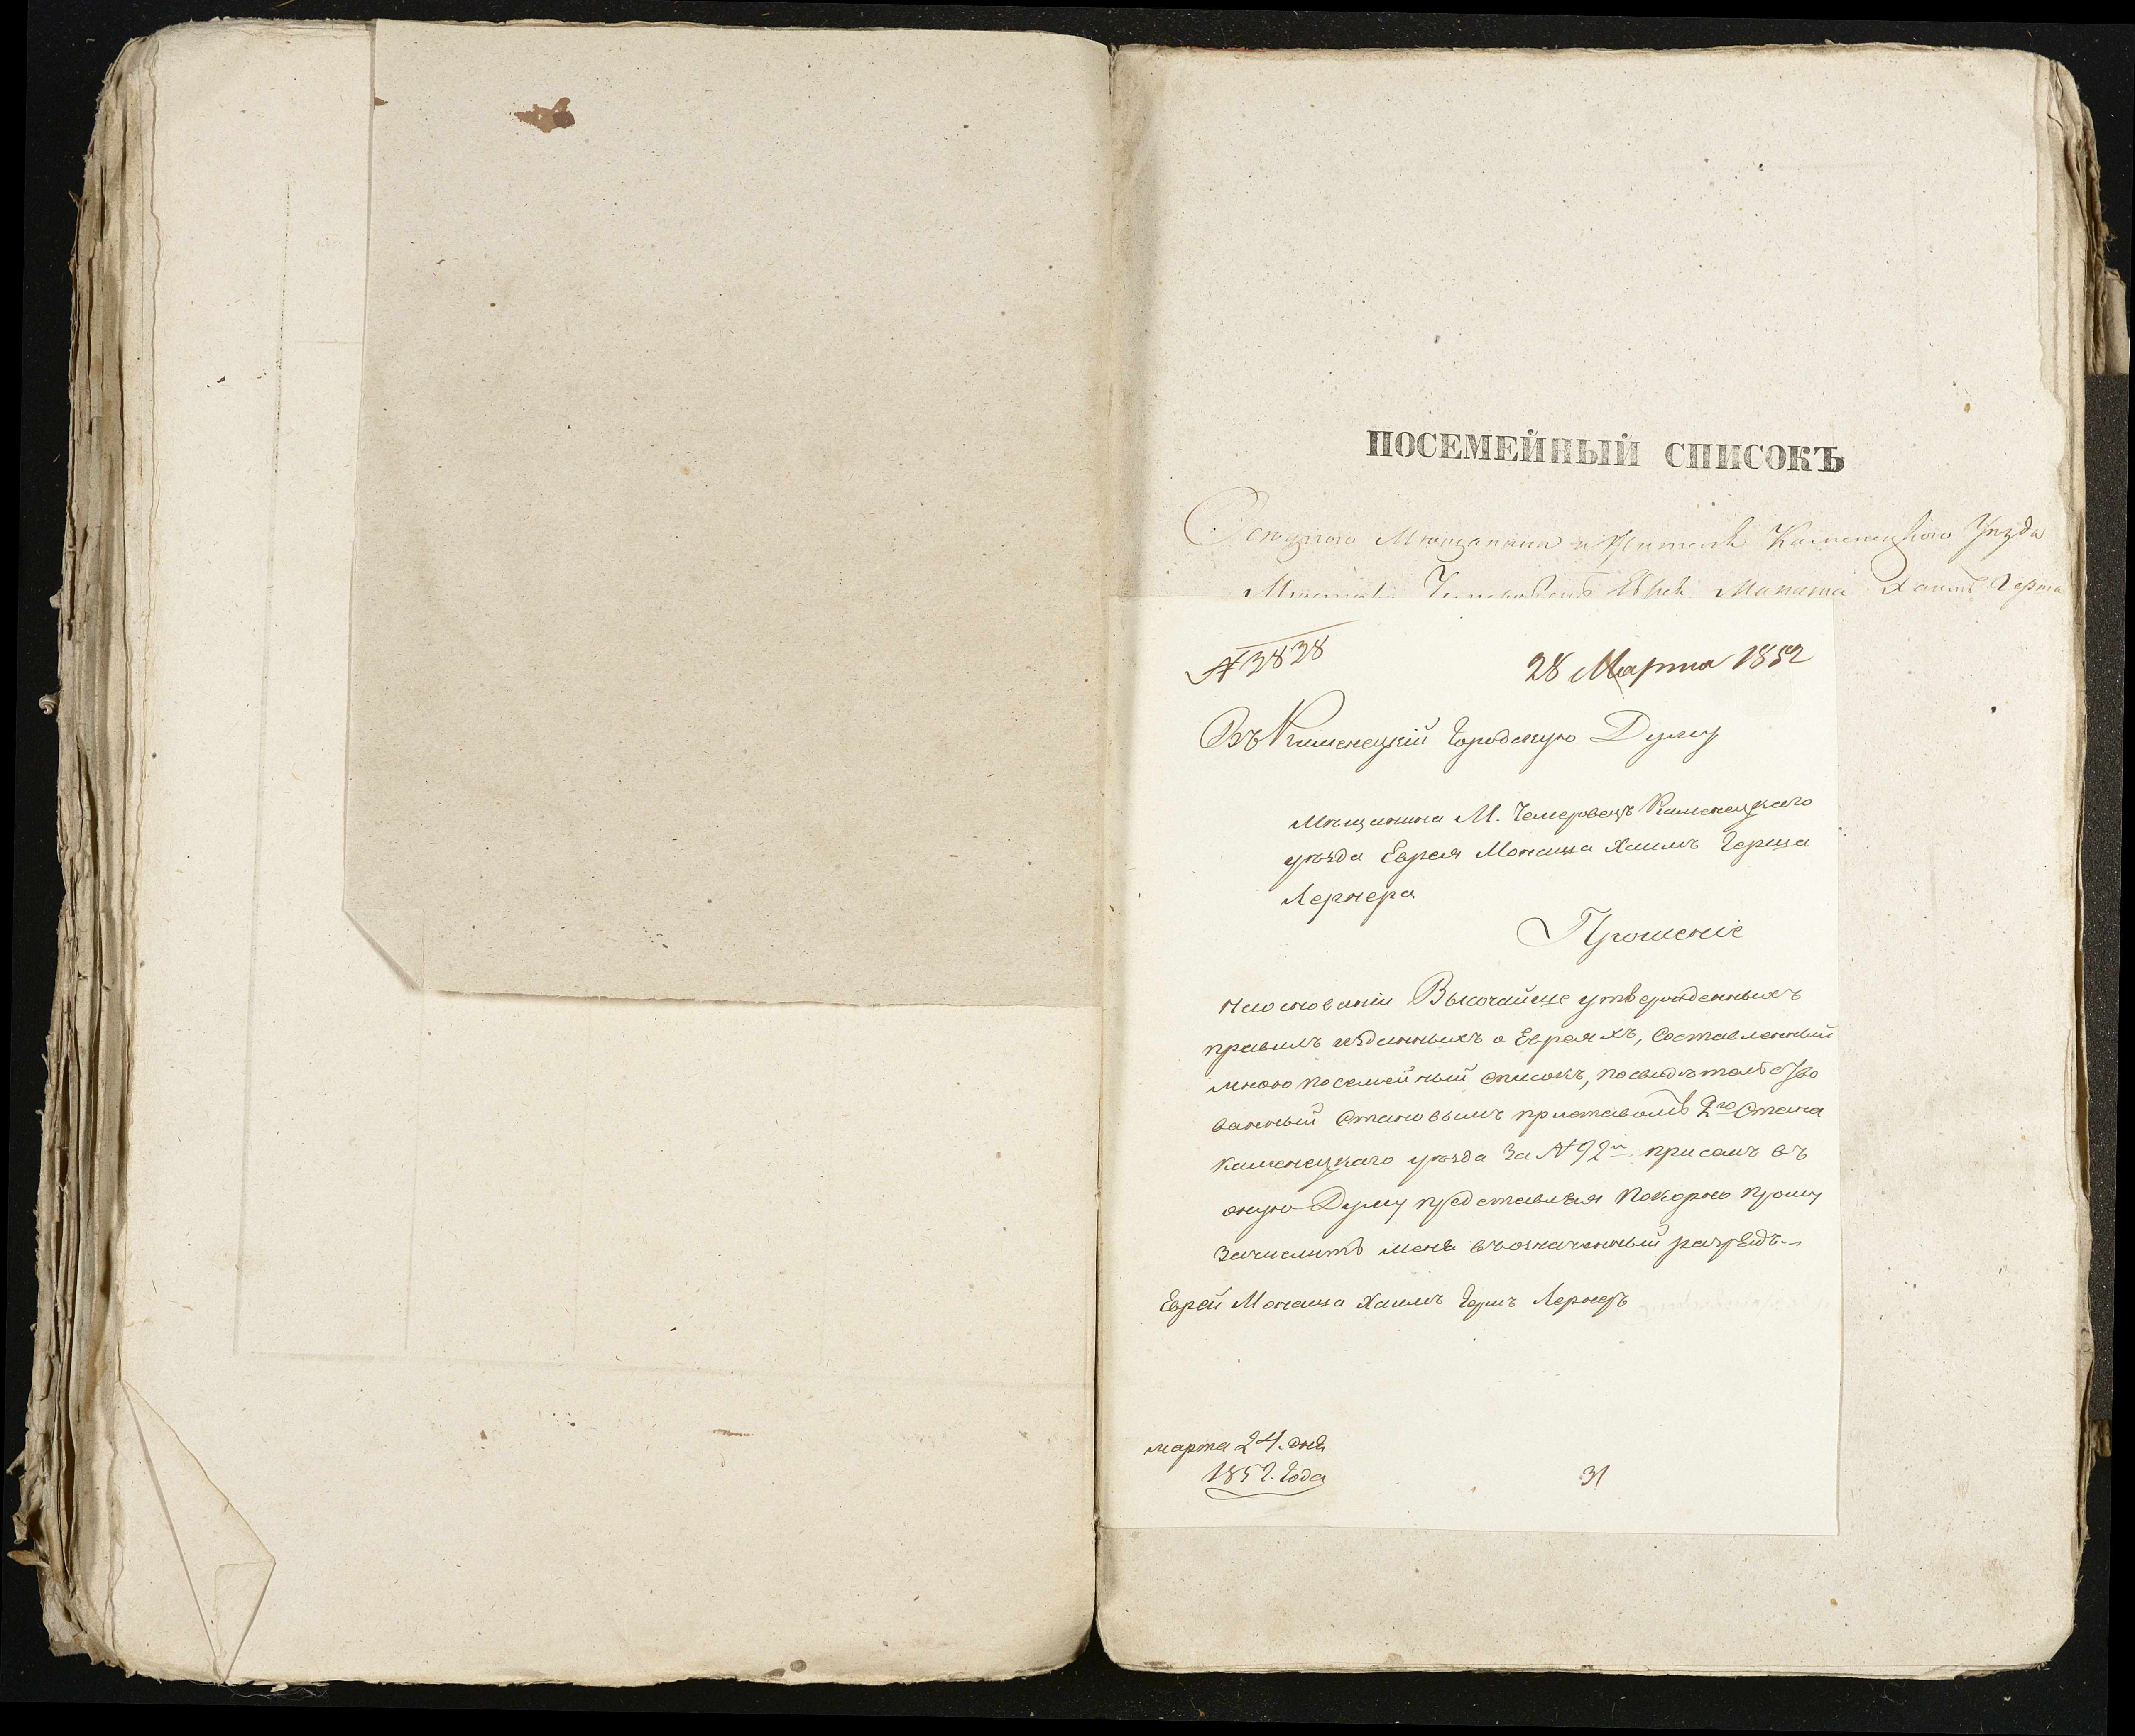 ПОСЕМЕЙНЫЙ СПИСОКЪ
Мѣщанина и Жителя Каменецкого Уѣзда
Мѣстечка Чемеровецъ Еврея Манаша Хаимъ Герша
№ 2828
28 Марта 1852
Въ Каменецкій Городскую Думу
Мѣщанина М. Чемеровецъ Каменецкаго
уѣзда Еврея Монаша Хаимъ Герша
Лернера
Прошеніе
На основаніи Высочайше утвержденныхъ
правилъ изданныхъ о Евреяхъ, составленный
мною посемейный списокъ, посвидѣтельство
ванный Становымъ приставомъ 2го Стана
Каменецкаго уѣзда за № 92м при семъ въ
оную Думу представляя покорно прошу
зачислить меня въ означенный разрядъ.
Еврей Монаша Хаимъ Гершъ Лернеръ
марта 24. дня
1852. Года
31